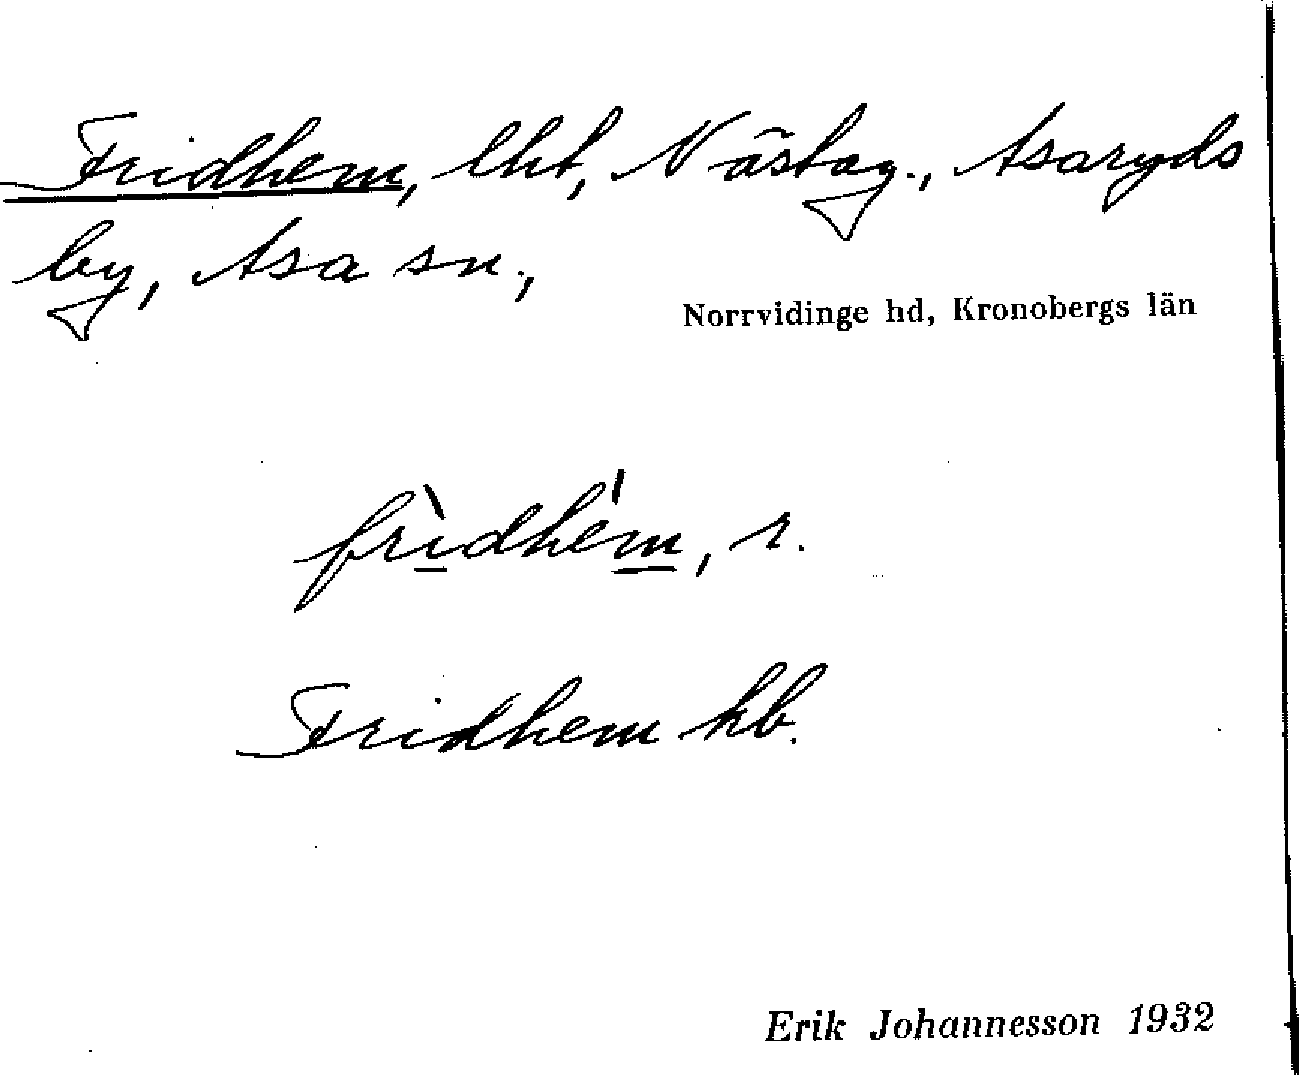 Fridhem, lht, Västag., Asaryds
by, Asa sn.,
Norrvidinge hd, Kronobergs län
frìdhém, r.
Fridhem kb.
Erik Johannesson 1932